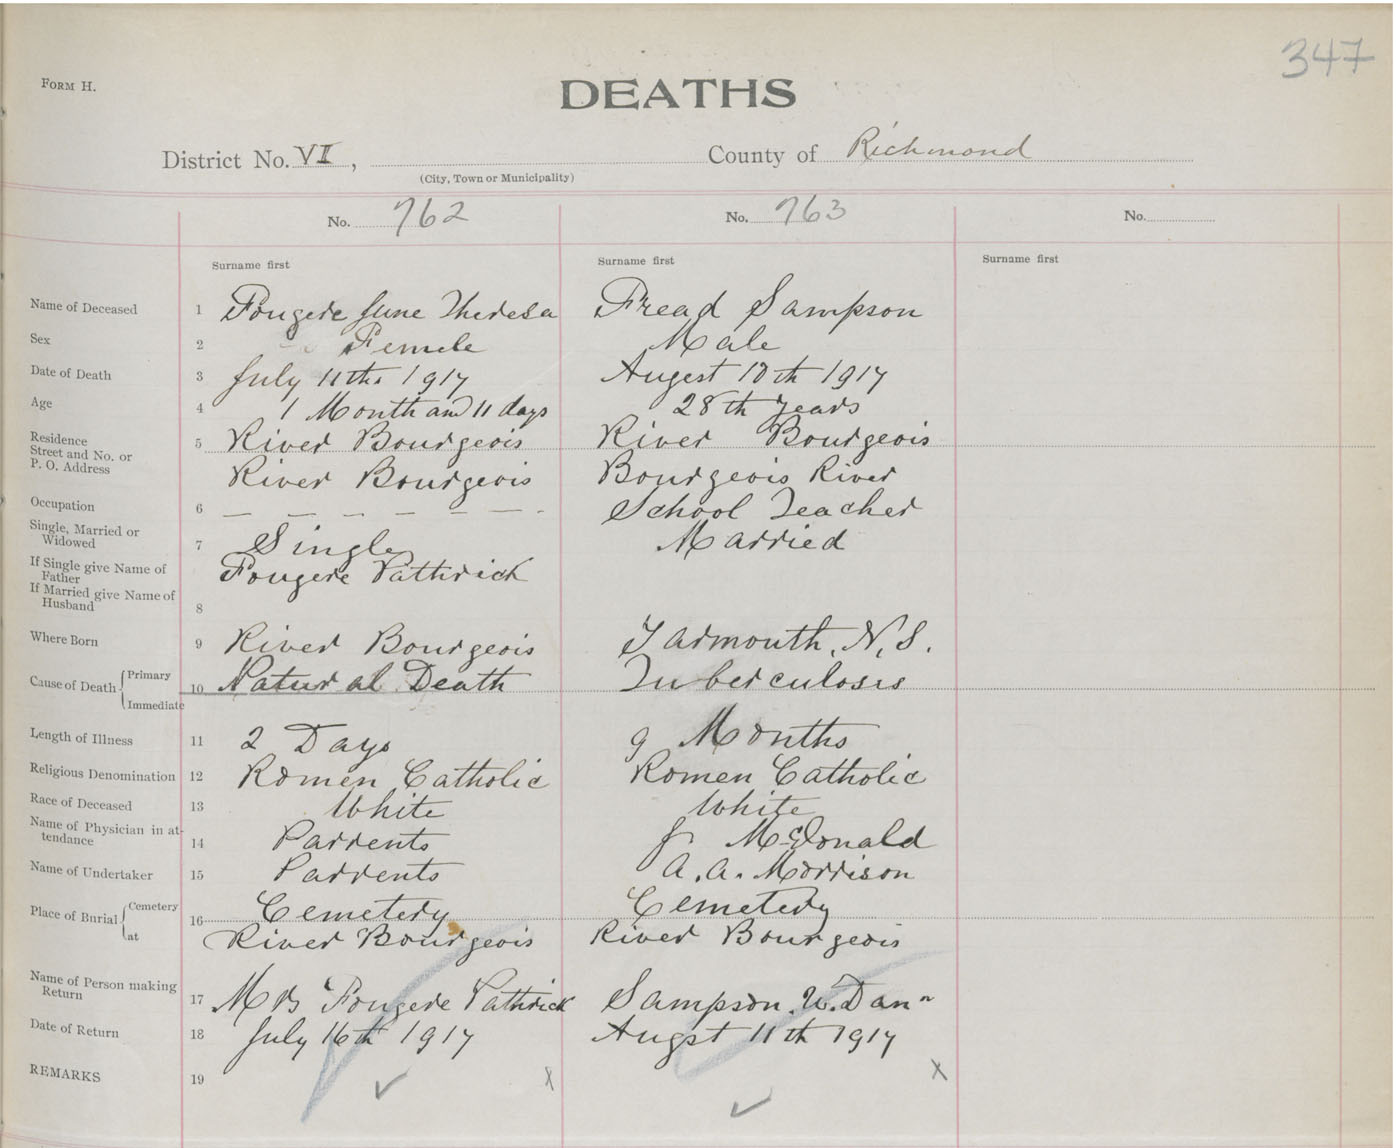 347
FORM H.
DEATHS
District No. VI , County of Richmond
(City, Town or Municipality)
No. 762 No. 763 No.
Surname first Surname first Surname first
Name of Deceased 1 Fougere June Theresa Fread Sampson
Sex 2 Femele Male
Date of Death 3 July 11th 1917 Augest 10th 1917
Age 4 1 Month and 11 days 28th Years
Residence 5 River Bourgeois River Bourgeois
Street and No. or
P. O. Address River Bourgeois Bourgeois River
Occupation 6 — — — — — — School Teacher
Single, Married or
Widowed 7 Single Married
If Single give Name of
Father Fougere Pathrick
If Married give Name of
Husband 8
Where Born 9 River Bourgeois Yarmouth, N.S.
Cause of Death Primary 10 Natural Death Tuberculosis
Immediate
Length of Illness 11 2 Days 9 Months
Religious Denomination 12 Romen Catholic Romen Catholic
Race of Deceased 13 White White
Name of Physician in at-
tendance 14 Parrents J McDonald
Name of Undertaker 15 Parrents A. A. Morrison
Place of Burial Cemetery 16 Cemetery Cemetery
at River Bourgeois River Bourgeois
Name of Person making
Return 17 Mrs Fougere Pathrick Sampson. W. Dan
Date of Return 18 July 16th 1917 Augst 11th 1917
REMARKS 19 x x